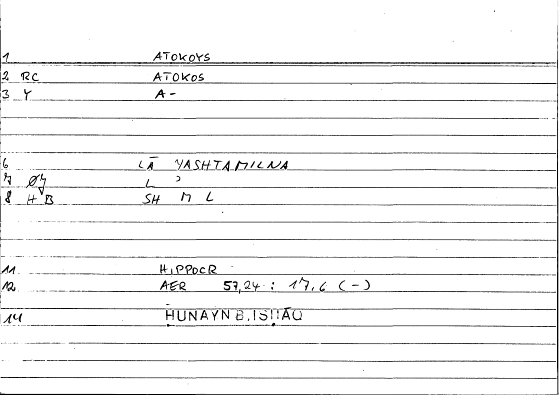 1 ATOKOYS
2 RC ATOKOS
3 Y A-
6 LĀ YASHTAMILNA
7 ØJ L ʾ
8 H B SH M L
11 HIPPOCR
12 AER 57,24 : 17,6 (-)
14 ḤUNAYN B. ISḤĀQ